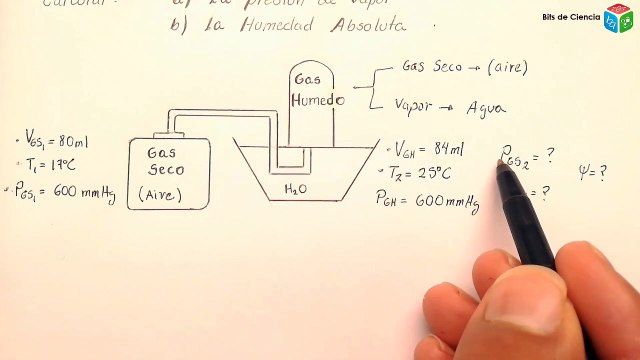 Calcular: a) La presión de vapor
b) La Humedad Absoluta.
Bits de Ciencia
Gas
Humedo
Gas Seco → (aire)
Vapor → Agua
· V_GS₁ = 80 ml
· T₁ = 17°C
· P_GS₁ = 600 mmHg
Gas
Seco
(Aire)
H₂O
· V_GH = 84 ml
· T₂ = 25°C
P_GH = 600 mmHg
P_GS₂ = ?
= ?
Ψ = ?